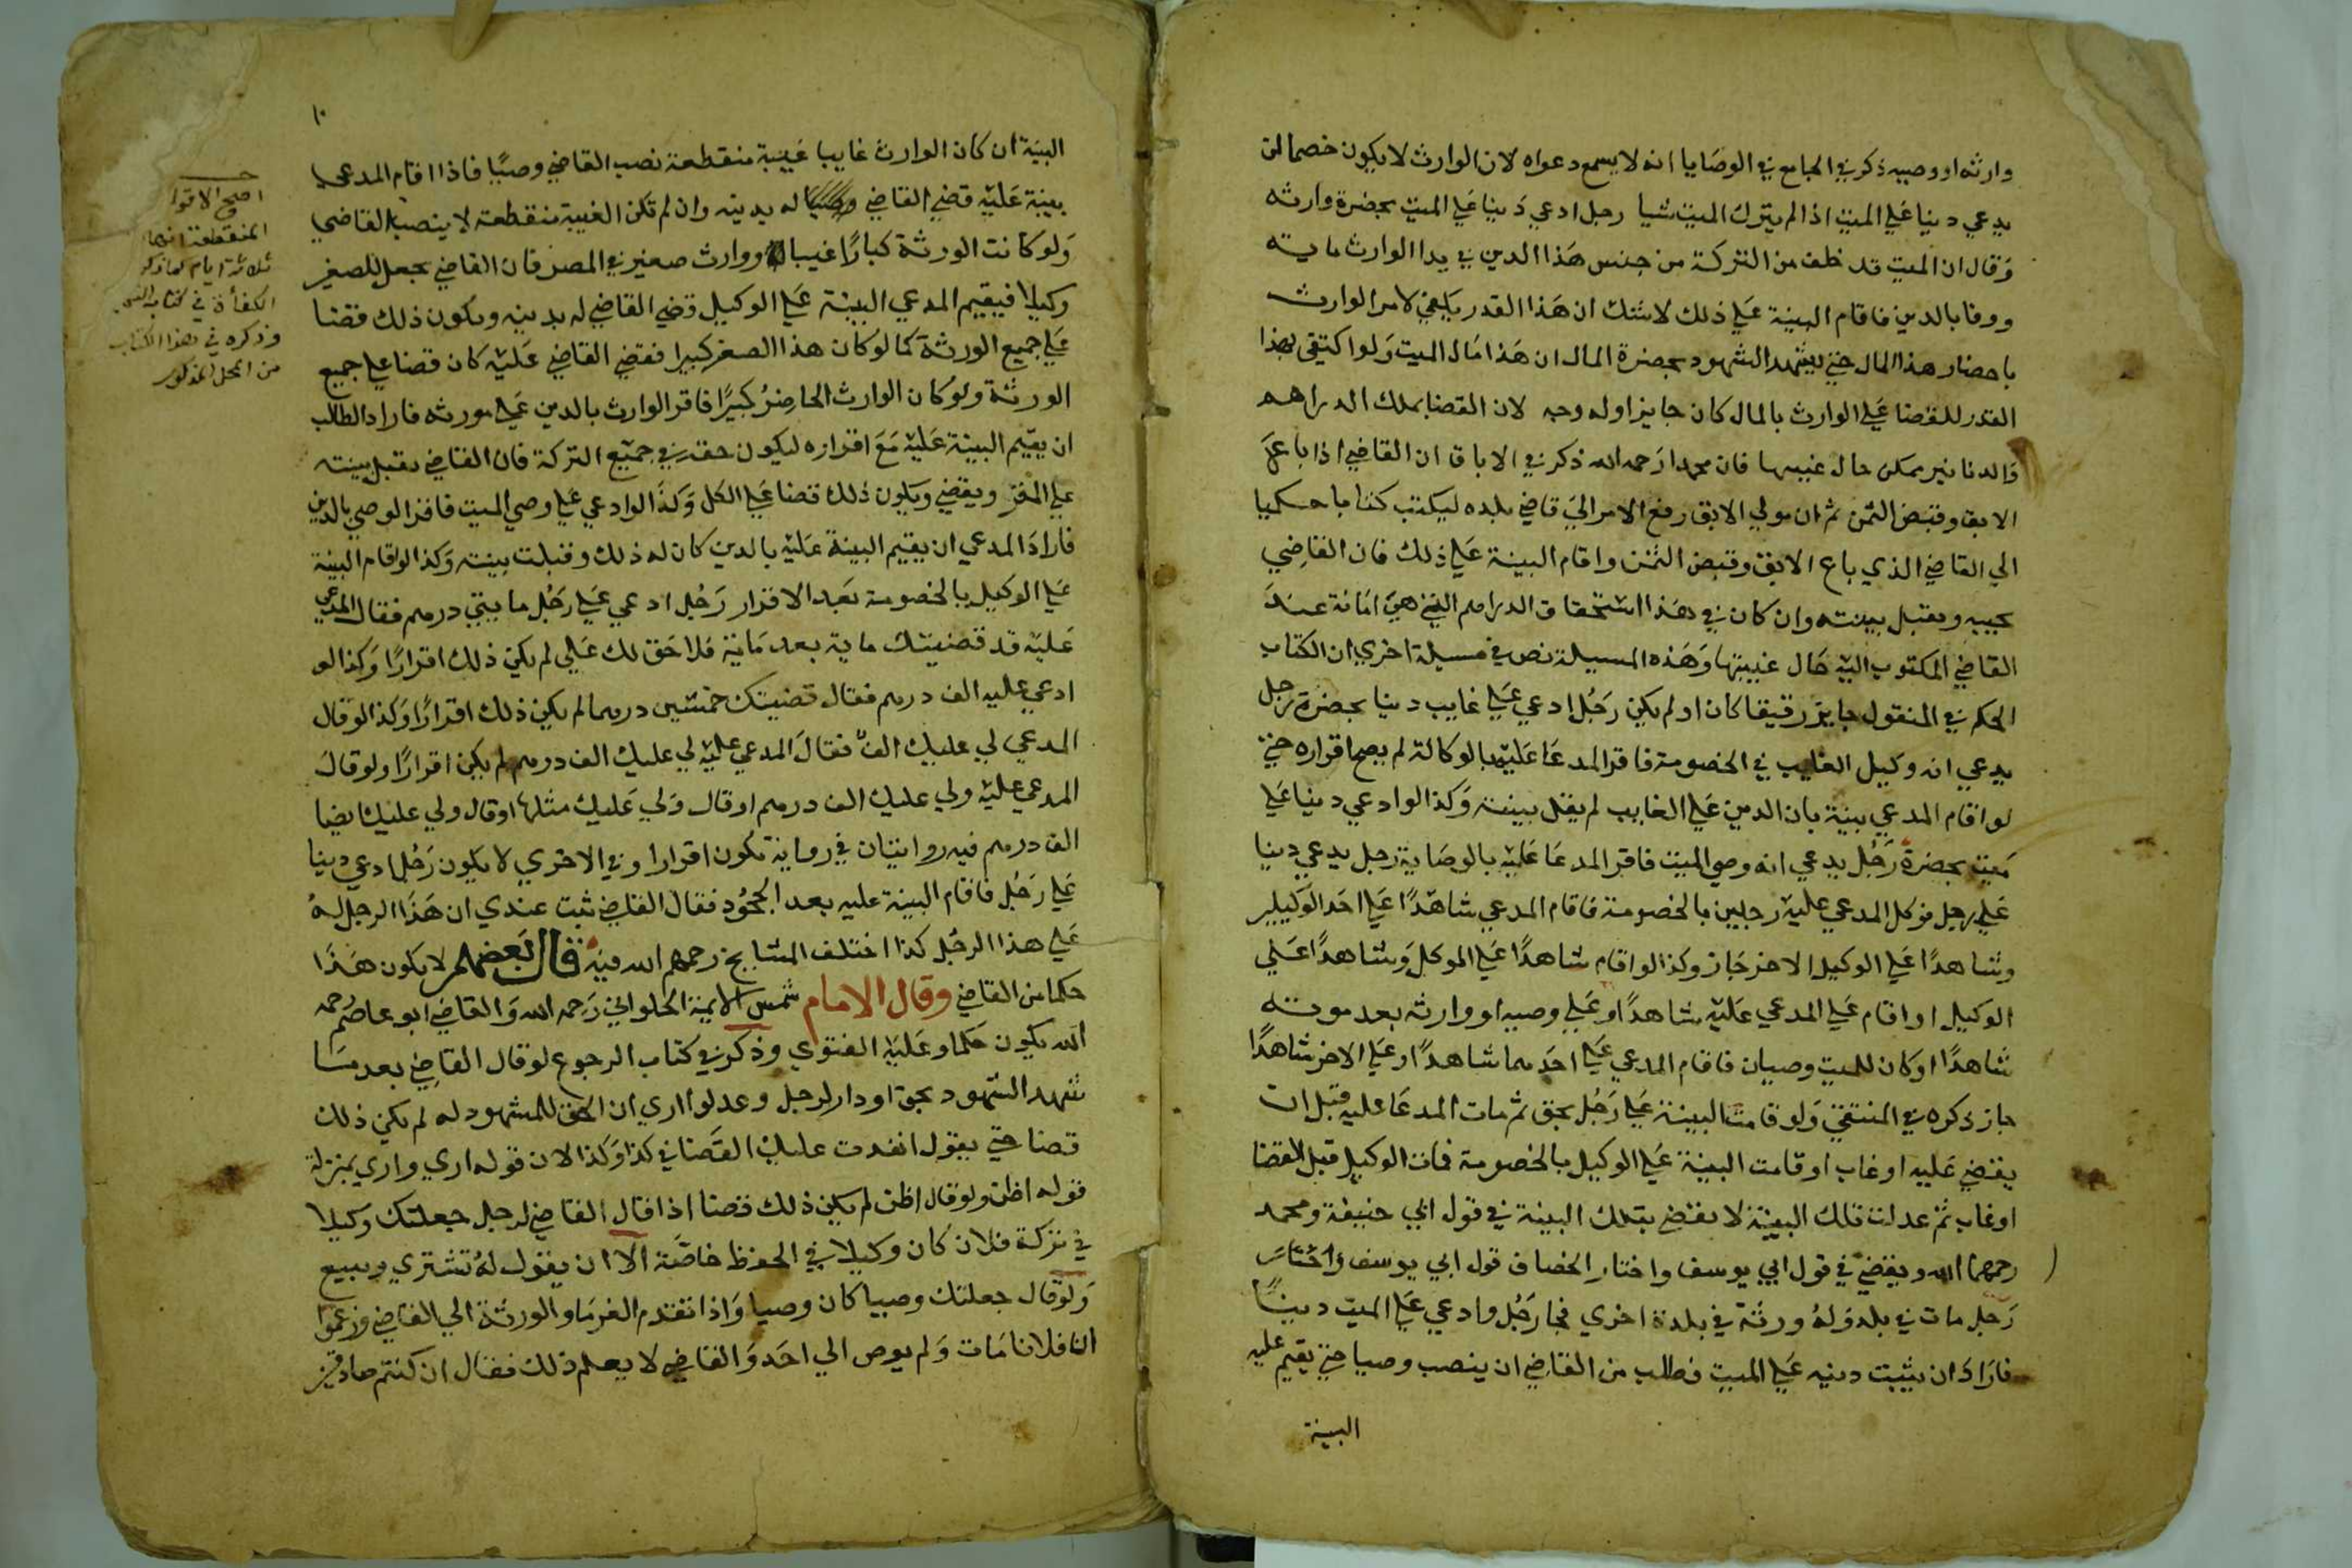 وارثه او وصيه ذكر في الجامع في الوصايا انه لا يسمع دعواه لان الوارث لا يكون خصما لمن
يدعي دينا علي الميت اذا لم يترك الميت شيا رجل ادعي دينا علي الميت بحضرة وارثه
وقال ان الميت قد خلف من التركة من جنس هذا الدين في يدا الوارث ما به
ووفا بالدين فاقام البينة علي ذلك لا شك ان هذا القدر يكفي لامر الوارث
باحضار هذا المال حتي يشهد الشهود بحضرة المال ان هذا مال الميت ولو اكتفي بهذا
القدر للقضا علي الوارث بالمال كان جايزا وله وجه لان القضا بملك الدراهم
والدنانير يمكن حال غيبتها فان محمدا رحمه الله ذكر في الاباق ان القاضي اذا باع
الابق وقبض الثمن ثم ان مولي الابق رفع الامر الي قاضي بلده ليكتب كتابا حكميا
الي القاضي الذي باع الابق وقبض الثمن واقام البينة علي ذلك فان القاضي
يجيبه ويقبل بينته وان كان في هذا استحقاق الدراهم التي هي امانة عند
القاضي المكتوب اليه حال غيبتها وهذه المسيلة نص في مسيلة اخري ان الكتاب
الحكم في المنقول جايز رقيقا كان او لم يكن رجل ادعي علي غايب دينا بحضرة رجل
يدعي انه وكيل الغايب في الخصومة فاقر المدعا عليه بالوكالة لم يصح اقراره حتي
لو اقام المدعي بينة بان الدين علي الغايب لم يقبل بينته وكذا لو ادعي دينا علي
ميت بحضرة رجل يدعي انه وصي الميت فاقر المدعا عليه بالوصاية رجل يدعي دينا
علي رجل فوكل المدعي عليه رجلين بالخصومة فاقام المدعي شاهدًا علي احد الوكيلين
وشاهدًا علي الوكيل الاخر جاز وكذا لو اقام شاهدًا علي الموكل وشاهدًا علي
الوكيل او اقام علي المدعي عليه شاهدًا وعلي وصيه او وارثه بعد موته
شاهدًا او كان للميت وصيان فاقام المدعي علي احدهما شاهدًا وعلي الاخر شاهدًا
جاز ذكره في المنتقي ولو قامت البينة علي رجل بحق ثم مات المدعا عليه قبل ان
يقضي عليه او غاب او قامت البينة علي الوكيل بالخصومة فمات الوكيل قبل القضا
او غاب ثم عدلت تلك البينة لا يقضي بتلك البينة في قول ابي حنيفة ومحمد
رحمهما الله ويقضي في قول ابي يوسف واختار الخصاف قول ابي يوسف
رجل مات في بلد وله ورثة في بلدة اخري فجا رجل وادعي علي الميت دينًا
فاراد ان يثبت دينه علي الميت فطلب من القاضي ان ينصب وصيا حتي يقيم عليه
البينة
١٠
البينة ان كان الوارث غايبا غيبة منقطعة نصب القاضي وصيًا فاذا اقام المدعي
بينة عليه قضي القاضي له بدينه وان لم تكن الغيبة منقطعة لا ينصب القاضي
ولو كانت الورثة كبارًا غيبا ووارث صغير في المصر فان القاضي يجعل للصغير
وكيلا فيقيم المدعي البينة علي الوكيل قضي القاضي له بدينه ويكون ذلك قضا
علي جميع الورثة كما لو كان هذا الصغر كبيرا فقضي القاضي عليه كان قضا علي جميع
الورثة ولو كان الوارث الحاضر كبيرًا فاقر الوارث بالدين علي مورثه فاراد الطالب
ان يقيم البينة عليه مع اقراره ليكون حقه في جميع التركة فان القاضي يقبل بينته
علي المقر ويقضي ويكون ذلك قضا علي الكل وكذا لو ادعي علي وصي الميت فاقر الوصي بالدين
فاراد المدعي ان يقيم البينة عليه بالدين كان له ذلك وقبلت بينته وكذا لو اقام البينة
علي الوكيل بالخصومة بعد الاقرار رجل ادعي علي رجل مايتي درهم فقال المدعي
عليه قد قضيتك ماية بعد ماية فلا حق لك علي لم يكن ذلك اقرارًا وكذا لو
ادعي عليه الف درهم فقال قضيتك خمسين درهما لم يكن ذلك اقرارًا وكذا لو قال
المدعي لي عليك الف فقال المدعي عليه لي عليك الف درهم لم يكن اقرارًا ولو قال
المدعي عليه ولي عليك الف درهم او قال ولي عليك مثلها او قال ولي عليك ايضا
الف درهم فيه روايتان في رواية يكون اقرارا وفي الاخري لا يكون رجل ادعي دينا
علي رجل فاقام البينة عليه بعد الجحود فقال القاضي ثبت عندي ان هذا الرجل له
علي هذا الرجل كذا اختلف المشايخ رحمهم الله فيه قال بعضهم لا يكون هذا
حكما من القاضي وقال الامام شمس الايمة الحلواني رحمه الله والقاضي ابو عاصم رحمه
الله يكون حكما وعليه الفتوي وذكر في كتاب الرجوع لو قال القاضي بعد ما
شهد الشهود بحق او دار لرجل وعدلوا اري ان الحق للمشهود له لم يكن ذلك
قضا حتي يقول انفدت عليك القضا في كذا وكذا لان قوله اري واري بمنزلة
قوله اظن ولو قال اظن لم يكن ذلك قضا اذا قال القاضي لرجل جعلتك وكيلا
في تركة فلان كان وكيلا في الحفظ خاصة الا ان يقول له تشتري وتبيع
ولو قال جعلتك وصيا كان وصيا واذا تقدم الغرما والورثة الي القاضي وزعموا
ان فلانا مات ولم يوص الي احد والقاضي لا يعلم ذلك فقال ان كنتم صادقين
اصح الاقوال
المنقطعة انها
ثلاثة ايام كما ذكر
الكفأة في كتاب
وذكره في هذا الكتاب
من المحل المذكور